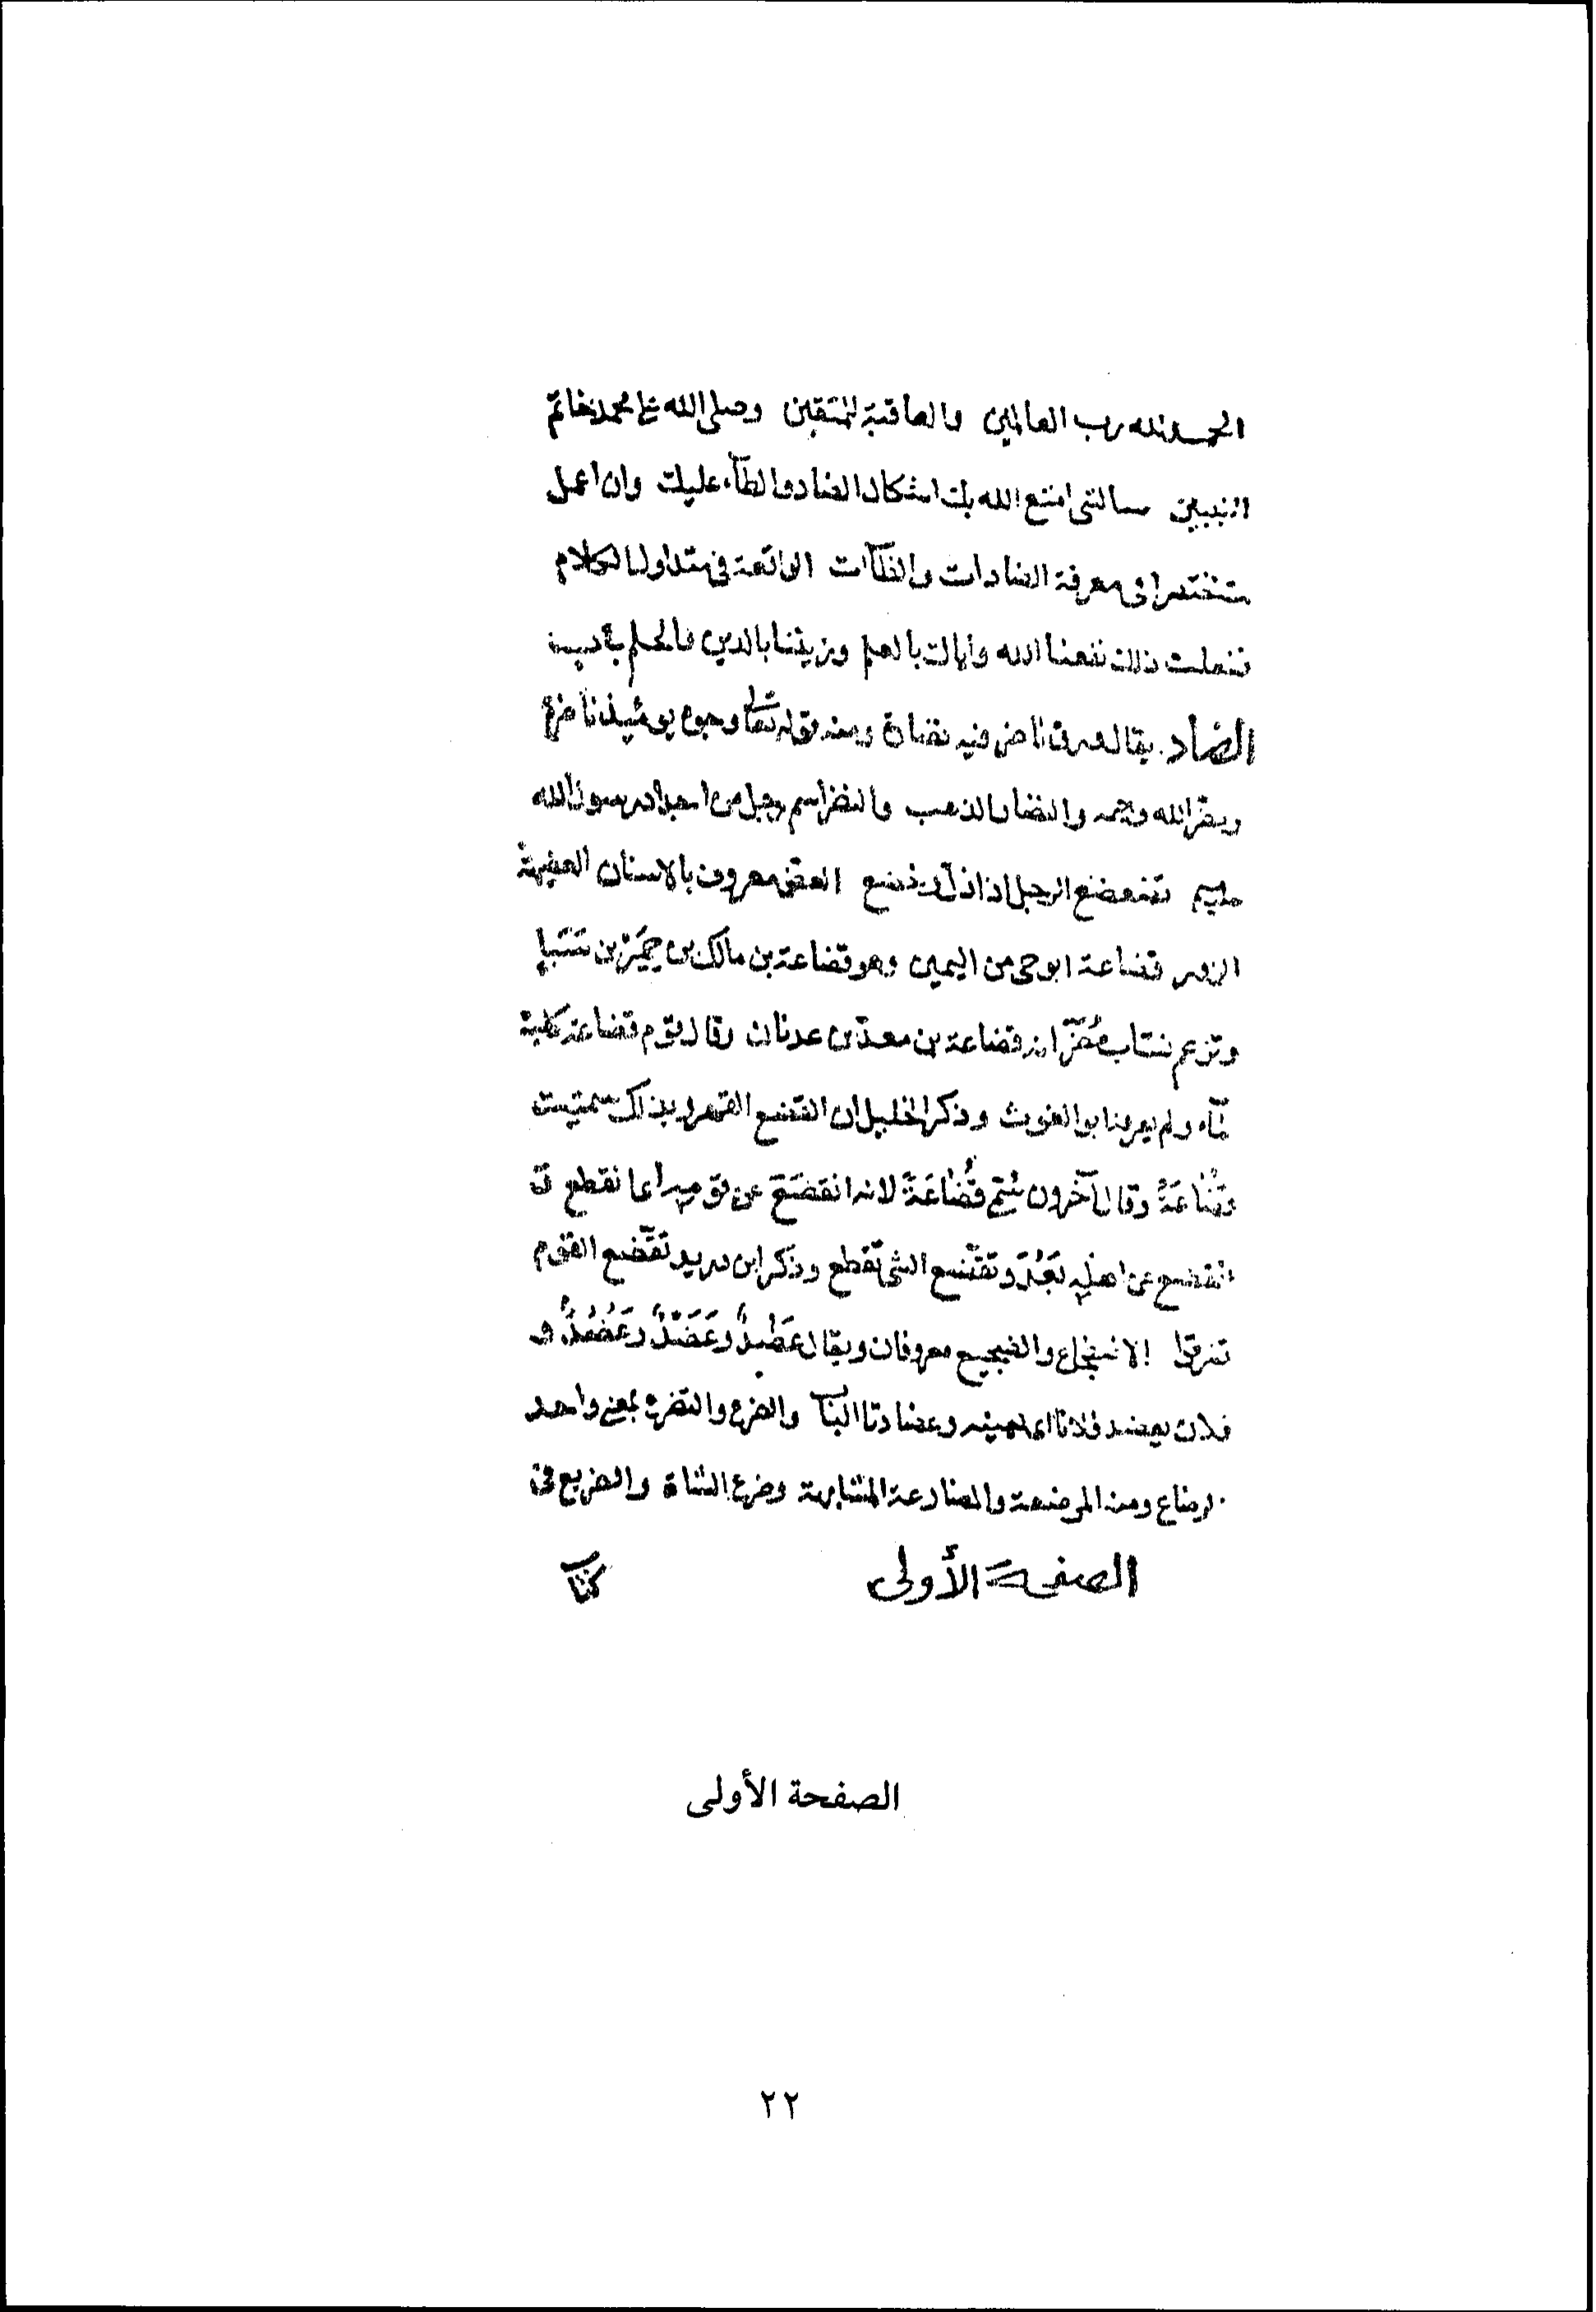 الحمد لله رب العالمين والعاقبة للمتقين وصلى الله على محمد خاتم
النبيين سالتنى امتع الله بك اشكال الضاد والظآء عليك وان اعمل
مختصرا فى معرفة الضادات والظآات الواقعة فى متداول الكلام
ففعلت ذلك نفعنا الله واياك بالعلم وزيننا بالدين
الضاد يقال ناضر فيه نضارة ومنه قوله تعالى وجوه يومئيذ ناضرة
ونضر الله وجهه والنضار الذهب والنضر اسم رجل من اجداد رسول الله
تضعضع الرجل اذا ذل العض معروف بالاسنان العضيهة
الزور قضاعة ابو حى من اليمن وهو قضاعة بن مالك بن حِميَر بن سَبَا
وتزعم نساب مُضَر ان قضاعة بن معدّ بن عدنان وقال قوم قضاعة كلبة
مآء ولم يعرفه ابو الغوث وذكر الخليل ان القضع القهر وبذلك سميت
قُضَاعَةُ وقال آخرون سُمّى قُضَاعَةَ لانه انقضَعَ عن قومه اى انقطع ق
انقضع عن اهله بَعُدَ وتقضّع الشى تقطع وذكر ابن دريد تقضّع القوم
تفرقوا الاضطجاع والضجيع معروفان ويقال عَضُدٌ وعَضَدٌ وعُضُدٌ و
فلان يعضد فلانا اى يعينه وعضادتا الباب والضرع والتضرع بمعنى واحد
الرضاع ومنه المرضعة والمضارعة المشابهة وضرع الشاة والضريع فى
الصفحة الأولى كتاب
الصفحة الأولى
٢٢